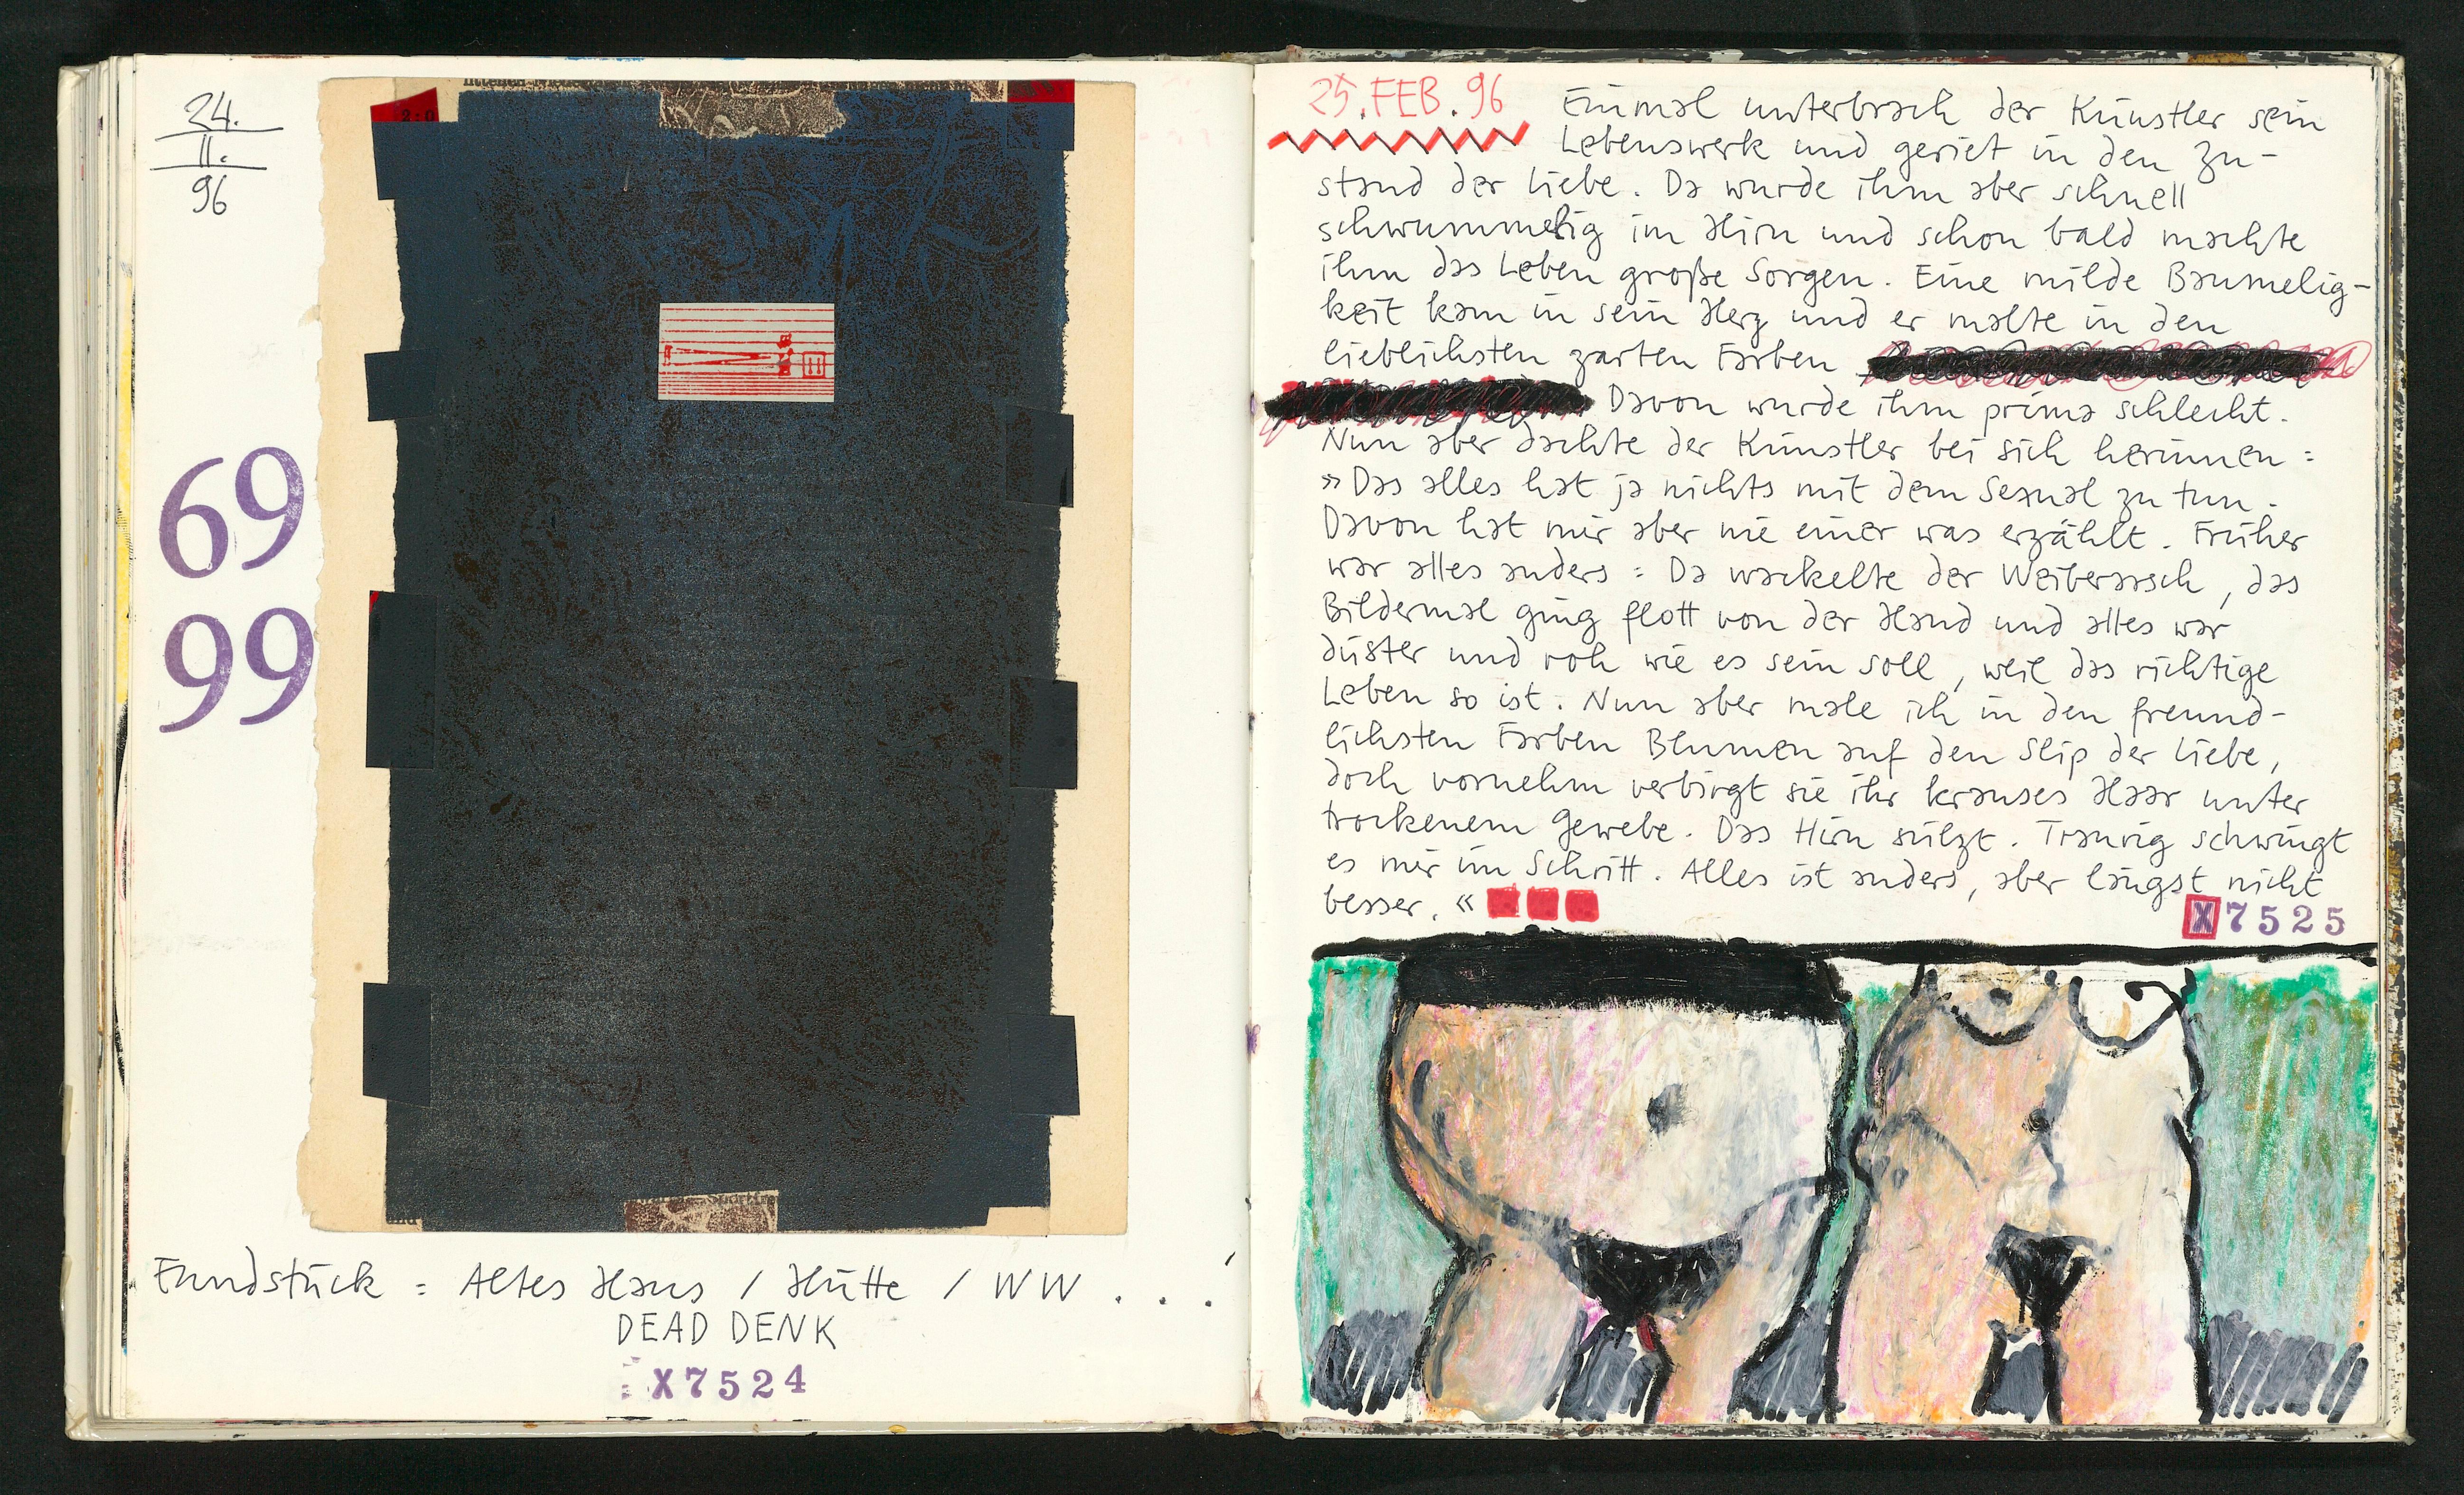 24.
II.
96
2:0
69
99
Fundstück = Altes Haus / Hütte / WW . . . .
DEAD DENK
X7524
25.FEB.96
Einmal unterbrach der Künstler sein
Lebenswerk und geriet in den Zu-
stand der Liebe. Da wurde ihm aber schnell
schwummelig im Hirn und schon bald machte
ihm das Leben große Sorgen. Eine milde Baumelig-
keit kam in sein Herz und er malte in den
lieblichsten zarten Farben
Davon wurde ihm prima schlecht.
Nun aber dachte der Künstler bei sich herinnen :
»Das alles hat ja nichts mit dem Sexual zu tun.
Davon hat mir aber nie einer was erzählt. Früher
war alles anders : Da wackelte der Weiberarsch, das
Bildermal ging flott von der Hand und alles war
düster und roh wie es sein soll, weil das richtige
Leben so ist. Nun aber male ich in den freund-
lichsten Farben Blumen auf den Slip der Liebe,
doch vornehm verbirgt sie ihr krauses Haar unter
trockenem Gewebe. Das Hirn sülzt. Traurig schwingt
es mir im Schritt. Alles ist anders, aber längst nicht
besser. «
X7525